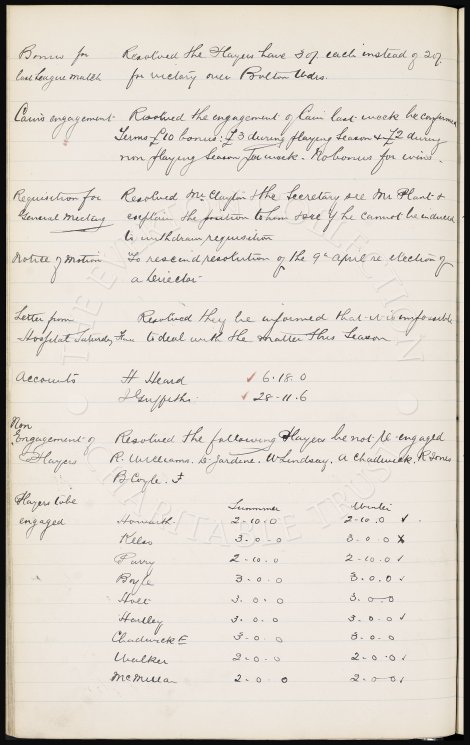 Bonus for Resolved the Players have 30/ each instead of 20/
last League match for victory over Bolton Wdrs.
Cain's engagement Resolved the engagement of Cain last week be confirmed
Terms £10 bonus: £3 during playing Season & £2 during
non playing Season per week. No bonus for wins.
Requisition for Resolved Mr Clayton & the Secretary see Mr Plant &
General Meeting explain the position to him & see if he cannot be induced
to withdraw requisition
Notice of Motion To rescind resolution of the 9th April re election of
a Director
Letter from Resolved they be informed that it is impossible
Hospital Saturday Fund to deal with the matter this Season
Accounts H Heard ✓ 6.18.0
J Griffiths ✓ 28-11.6
Non
Engagement of Resolved the following Players be not re-engaged
Players R. Williams. D Jardine. W Lindsay. A Chadwick. R Jones
B Coyle.
Players to be Summer Winter
engaged Howarth 2-10.0 2-10.0 ✓
Kelso 3.0.0 3.0.0 X
Parry 2-10.0 2-10.0 ✓
Boyle 3.0.0 3.0.0 ✓
Holt 3.0.0 3.0.0
Hartley 3.0.0 3.0.0 ✓
Chadwick E 3.0.0 3.0.0
Walker 2-0.0 2-0.0 ✓
McMillan 2-0.0 2-0.0 ✓
THE EVERTON COLLECTION
CHARITABLE TRUST